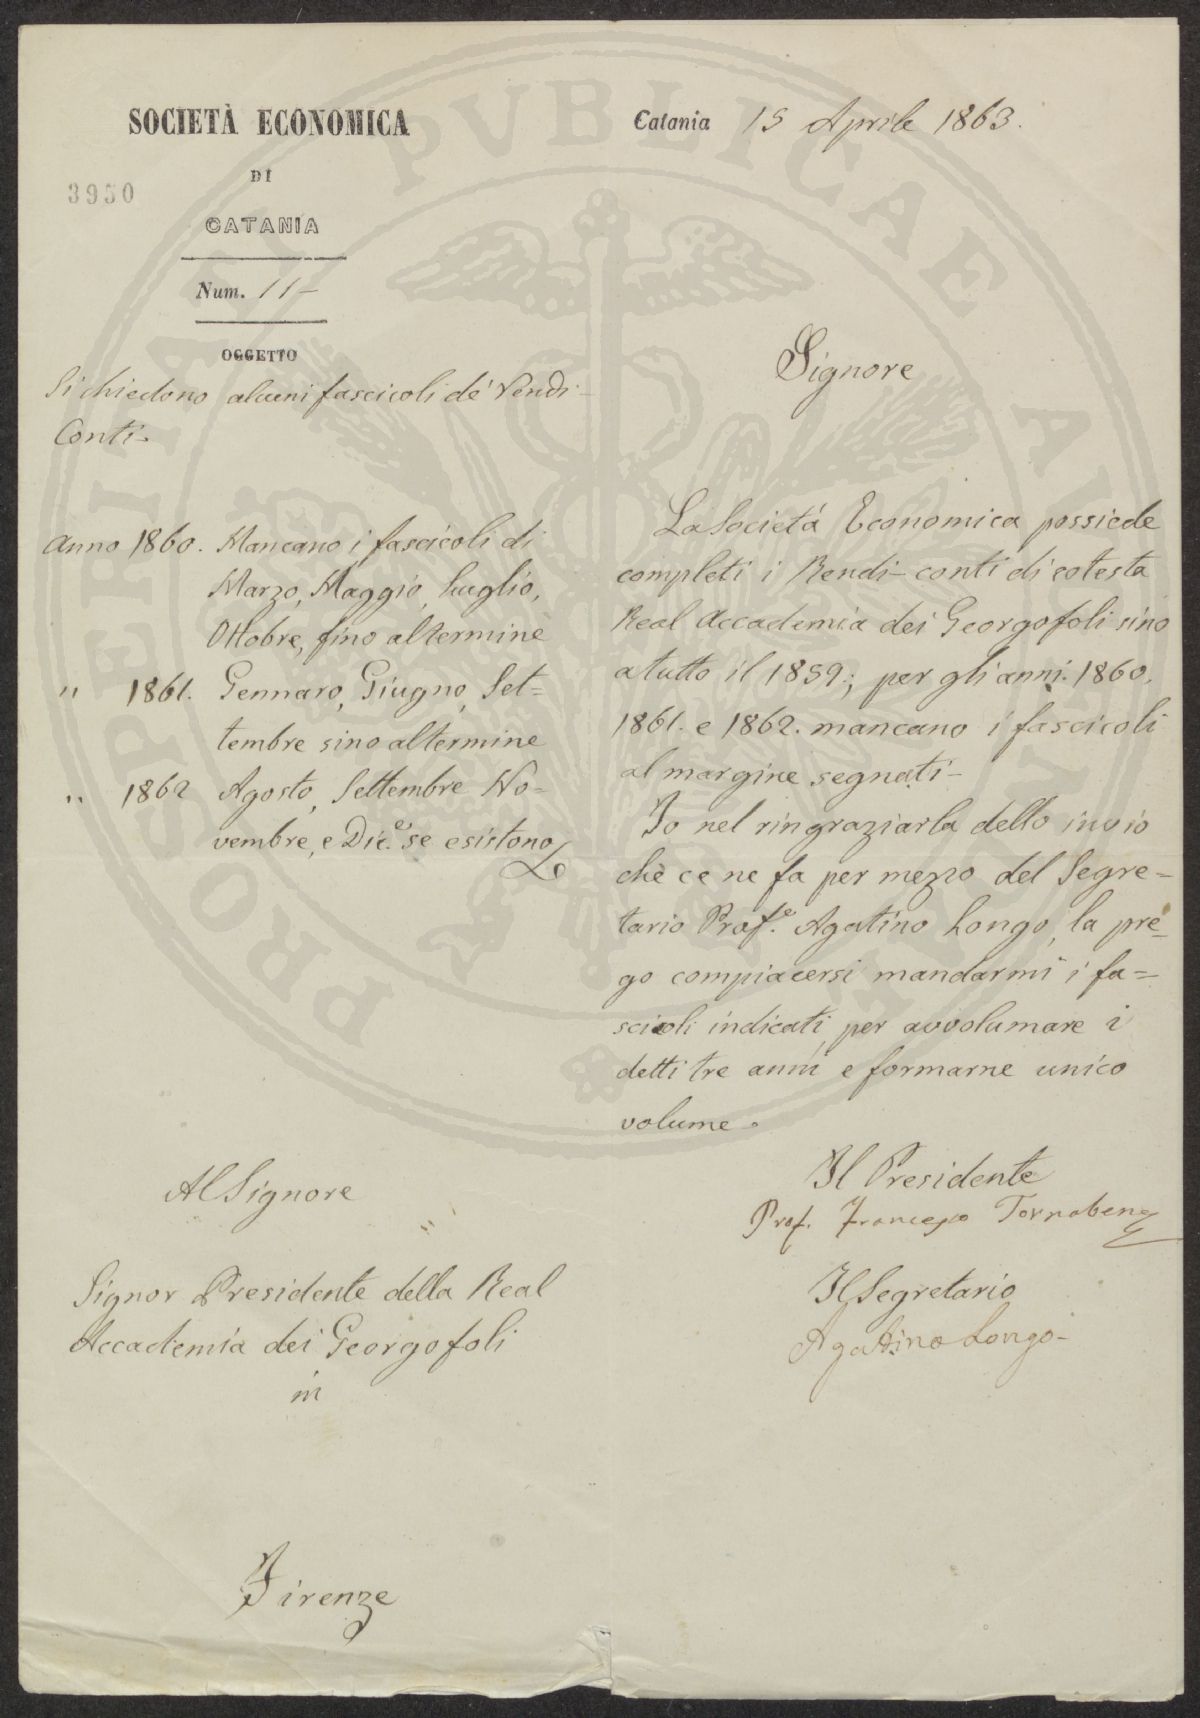 SOCIETÀ ECONOMICA
DI
CATANIA
3950
Num. 11-
OGGETTO
Si chiedono alcuni fascicoli de' Rendi-
Conti-
Anno 1860. Mancano i fascicoli di
Marzo, Maggio, Luglio,
Ottobre, fino al termine
" 1861. Gennaro, Giugno, Set=
tembre sino al termine
" 1862 Agosto, Settembre No=
vembre, e Dic.e se esistono
Al Signore
Signor Presidente della Real
Accademia dei Georgofoli
in
Firenze
Catania 15 Aprile 1863.
Signore
La Società Economica possiede
completi i Rendi-conti di cotesta
Real Accademia dei Georgofoli sino
a tutto il 1859; per gli anni 1860.
1861. e 1862. mancano i fascicoli
al margine segnati-
Io nel ringraziarla dello invio
che ce ne fa per mezzo del Segre=
tario Prof.e Agatino Longo, la pre=
go compiacersi mandarmi i fa=
scicoli indicati, per avvolumare i
detti tre anni e formarne unico
volume.
Il Presidente
Prof. Francesco Tornabene
Il Segretario
Agatino Longo-
PROSPERITATI PVBLICAE AVGENDAE